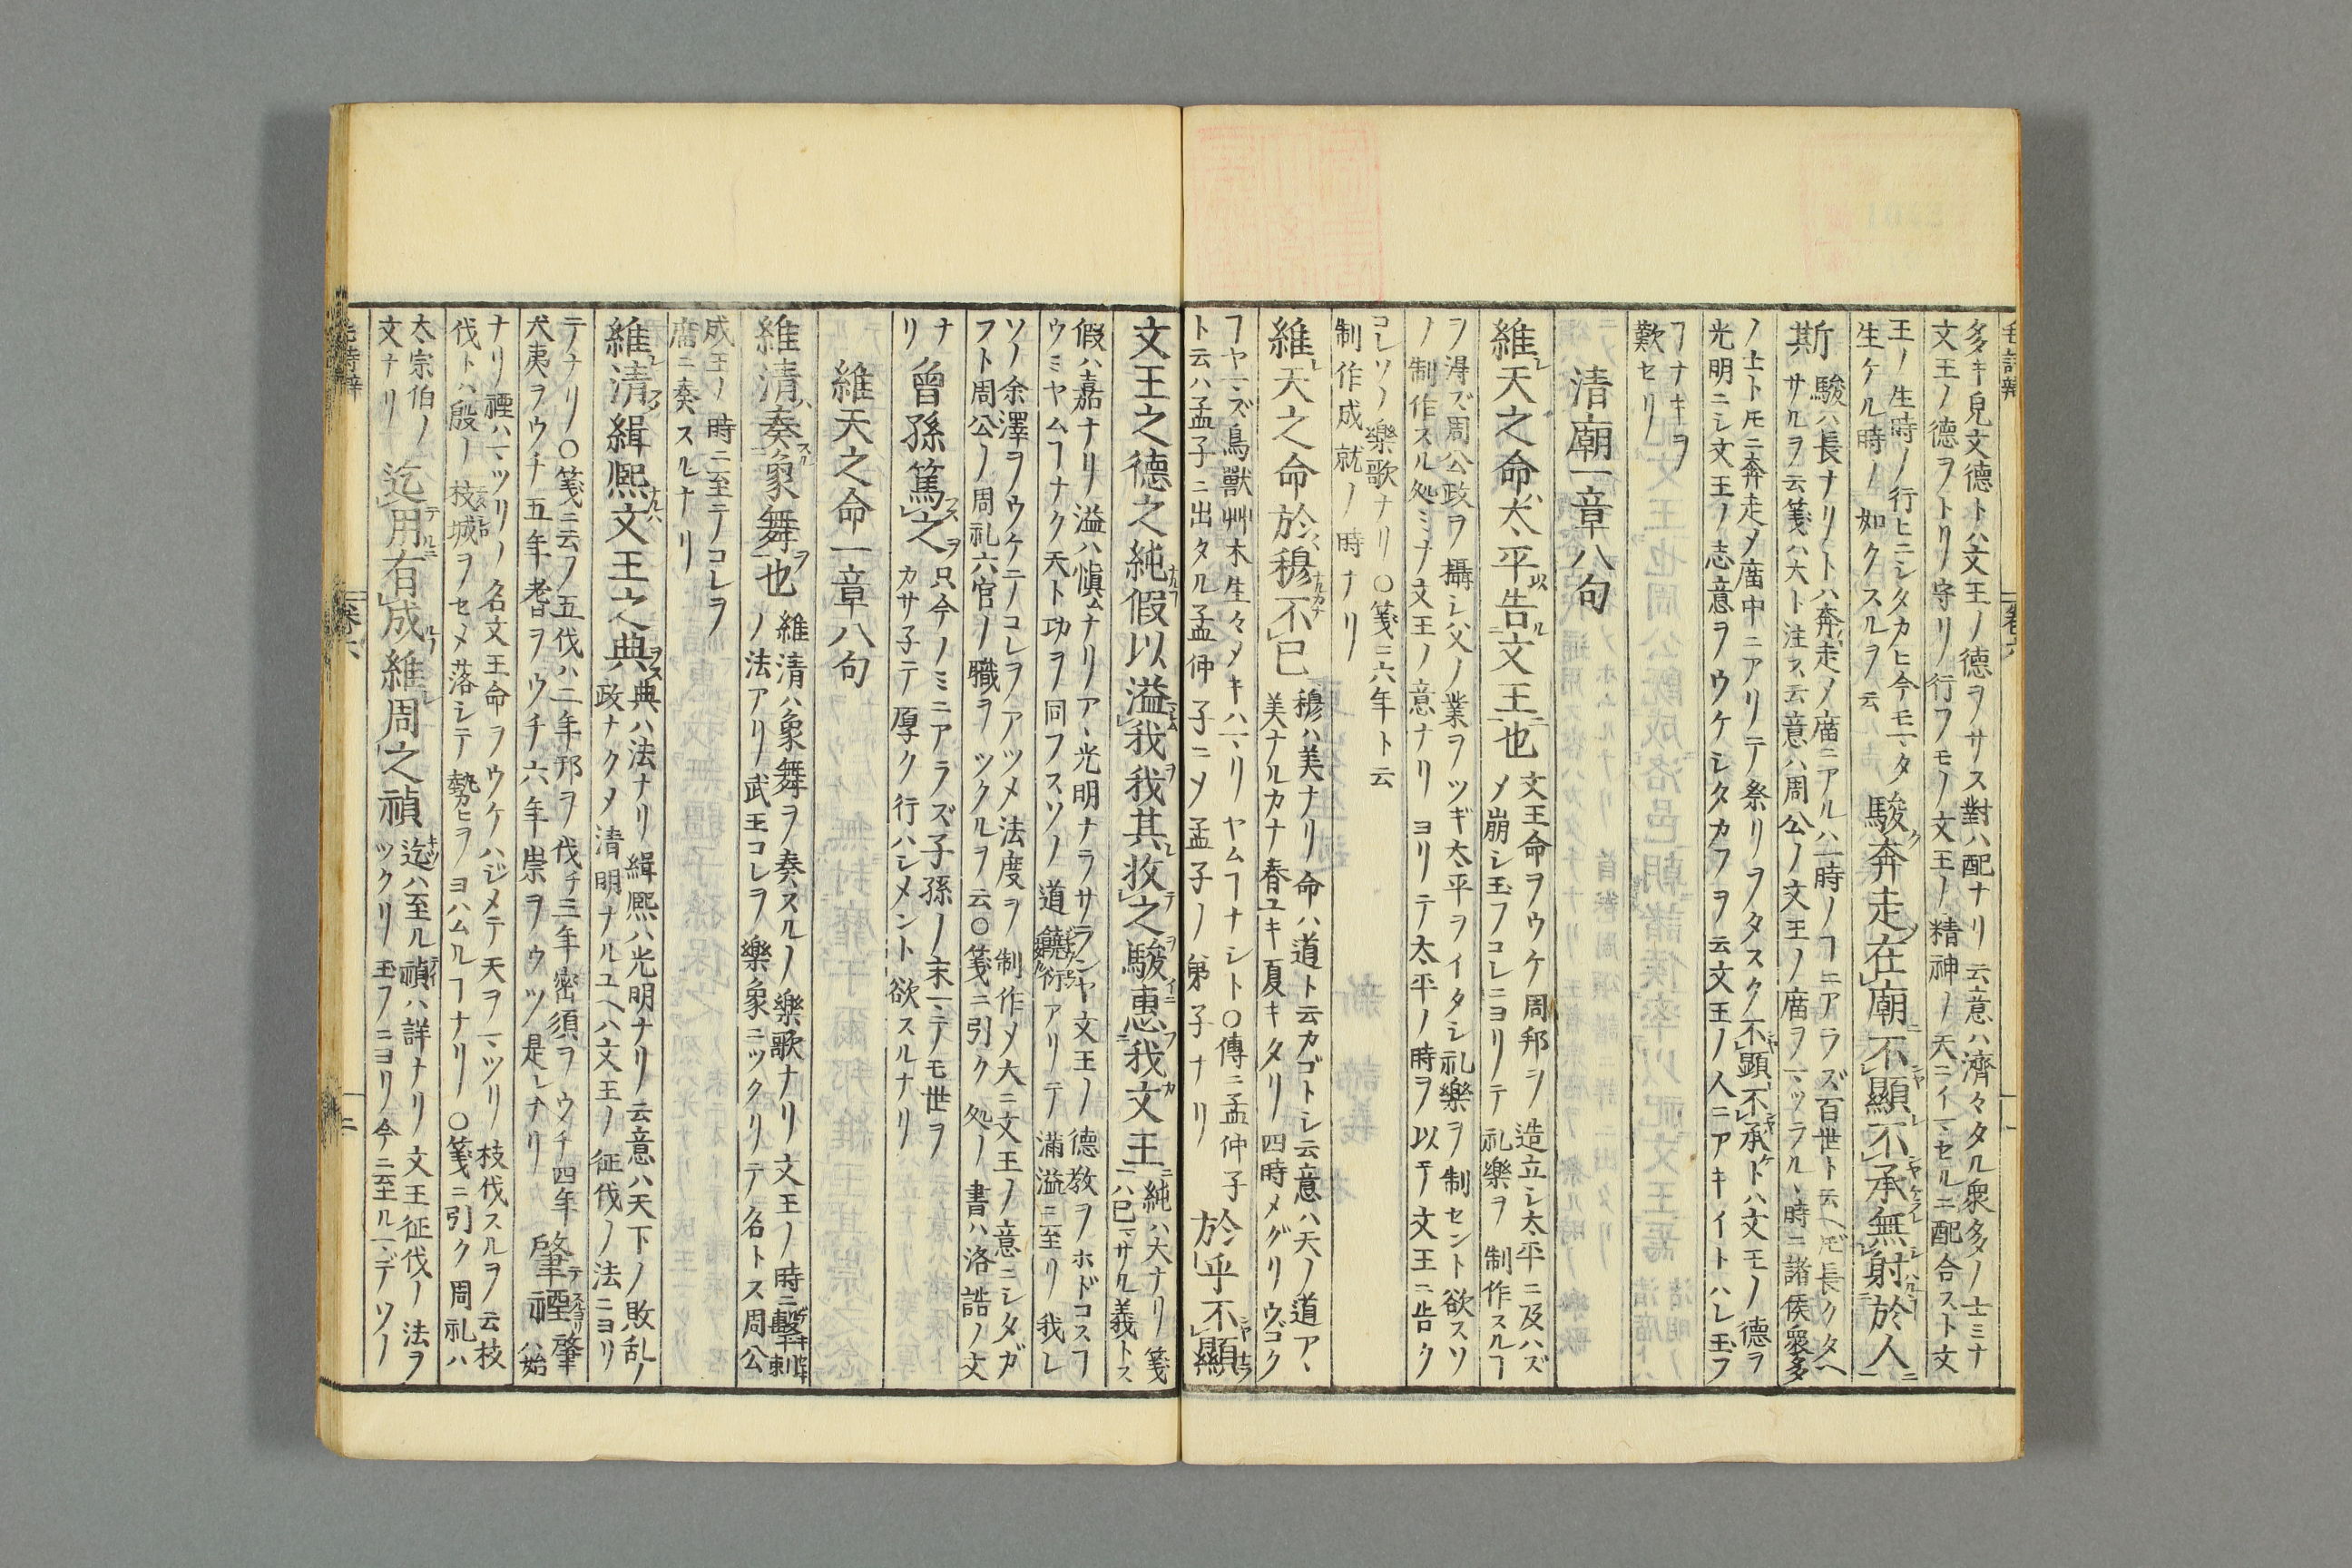 多キ皃文德トハ文王ノ德ヲサス對ハ配ナリ云意ハ濟々タル衆多ノ士ミナ
文王ノ德ヲトリ守リ行フモノ文王ノ精神ノ天ニイマセルニ配合スト文
王ノ生時ノ行ヒニシタカヒ今モマタ
生ケル時ノ如クスルヲ云
駿奔走在廟不顯不承無射於人
斯
駿ハ長ナリトハ奔走メ廟ニアルハ一時ノヿニアラズ百世ト云ヘ𪜈長クタヘ
サルヲ云箋ハ大ト注ス云意ハ周公ノ文王ノ廟ヲマツラルヽ時ニ諸侯衆多
ノ士ト𪜈ニ奔走メ廟中ニアリテ祭リヲタスク不顯不承トハ文王ノ德ヲ
光明ニシ文王ノ志意ヲウケシタカフヲ云文王ノ人ニアキイトハレ玉フ
ヿナキヲ
歎セリ
清廟一章八句
維天之命太平告文王也
文王命ヲウケ周邦ヲ造立シ太平ニ及ハズ
メ崩シ玉フコレニヨリテ礼樂ヲ制作スルヿ
ヲ淂ズ周公政ヲ攝シ父ノ業ヲツギ太平ヲイタシ礼樂ヲ制セント欲スソ
ノ制作スル処ミナ文王ノ意ナリヨリテ太平ノ時ヲ以テ文王ニ告ク
コレソノ樂歌ナリ○箋ニ六年ト云
制作成就ノ時ナリ
維天之命於穆不已
穆ハ美ナリ命ハ道ト云カゴトシ云意ハ天ノ道アヽ
美ナルカナ春ユキ夏キタリ四時メグリウゴク
ヿヤマズ鳥獸艸木生々メキハマリヤムヿナシト○傳ニ孟仲子
ト云ハ孟子ニ出タル孟仲子ニメ孟子ノ弟子ナリ
於乎不顯
文王之德之純假以溢我我其收之駿惠我文王
純ハ大ナリ箋
ニハ已マサル義トス
假ハ嘉ナリ溢ハ愼ナリアヽ光明ナラサランヤ文王ノ德教ヲホドコスヿ
ウミヤムヿナク天ト功ヲ同フスソノ道饒衍アリテ滿溢ニ至リ我レ
ソノ余澤ヲウケテコレヲアツメ法度ヲ制作メ大ニ文王ノ意ニシタガ
フト周公ノ周礼六官ノ職ヲツクルヲ云○箋ニ引ク処ノ書ハ洛誥ノ文
ナ
リ
曾孫篤之
只今ノミニアラズ子孫ノ末マテノモ世ヲ
カサ子テ厚ク行ハシメント欲スルナリ
維天之命一章八句
維清奏象舞也
維清ハ象舞ヲ奏スルノ樂歌ナリ文王ノ時ニ擊刺
ノ法アリ武王コレヲ樂象ニツクリテ名トス周公
成王ノ時ニ至テコレヲ
廟ニ奏スルナリ
維清緝熙文王之典
典ハ法ナリ緝熙ハ光明ナリ云意ハ天下ノ敗乱ノ
政ナクメ清明ナルユヘハ文王ノ征伐ノ法ニヨリ
テナリ○箋ニ云フ五伐ハ二年邘ヲ伐チ三年密須ヲウチ四年
犬夷ヲウチ五年耆ヲウチ六年崇ヲウツ是レナリ
肇禋
肇
ハ始
ナリ禋ハマツリノ名文王命ヲウケハジメテ天ヲマツリ枝伐スルヲ云枝
伐トハ殷ノ枝城ヲセメ落シテ勢ヒヲヨハムルヿナリ○箋ニ引ク周礼ハ
太宗伯ノ
文ナリ
迄用有成維周之禎
迄ハ至ル禎ハ詳ナリ文王征伐ノ法ヲ
ツクリ玉フニヨリ今ニ至ルマデソノ